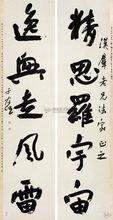 精思羅宇宙
漢羣老兄法家正之
逸興走風雷
于右任